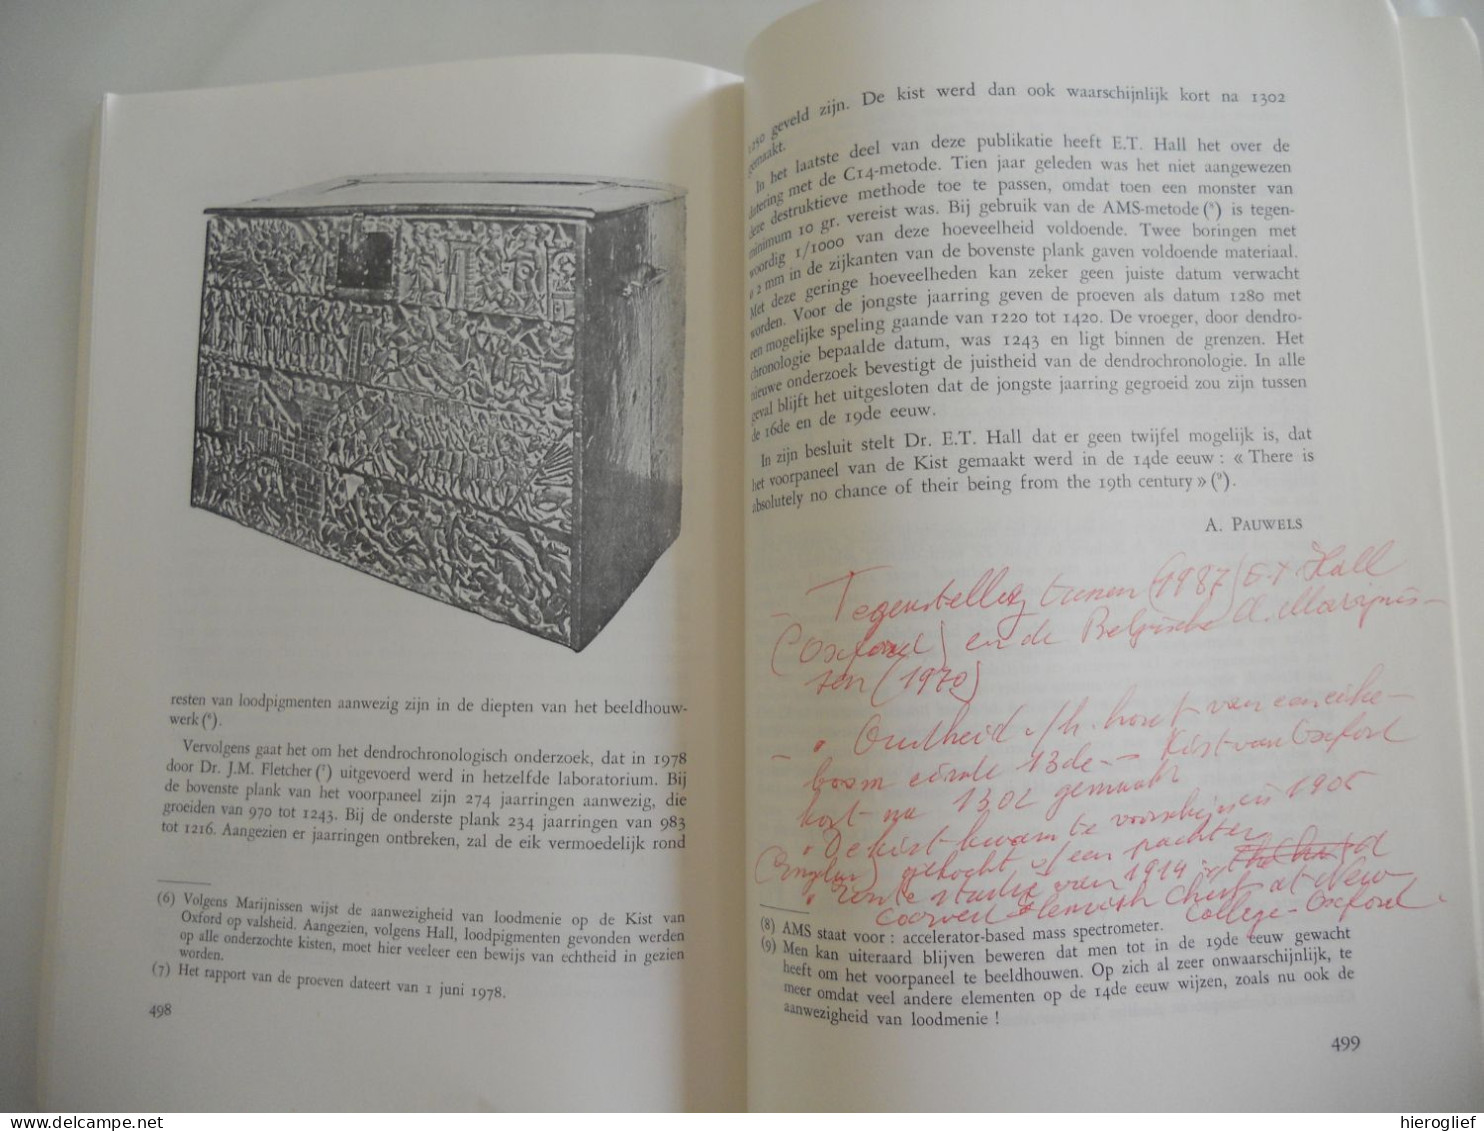 resten van loodpigmenten aanwezig zijn in de diepten van het beeldhouw-
werk(⁶).
Vervolgens gaat het om het dendrochronologisch onderzoek, dat in 1978
door Dr. J.M. Fletcher(⁷) uitgevoerd werd in hetzelfde laboratorium. Bij
de bovenste plank van het voorpaneel zijn 274 jaarringen aanwezig, die
groeiden van 970 tot 1243. Bij de onderste plank 234 jaarringen van 983
tot 1216. Aangezien er jaarringen ontbreken, zal de eik vermoedelijk rond
(6) Volgens Marijnissen wijst de aanwezigheid van loodmenie op de Kist van
Oxford op valsheid. Aangezien, volgens Hall, loodpigmenten gevonden werden
op alle onderzochte kisten, moet hier veeleer een bewijs van echtheid in gezien
worden.
(7) Het rapport van de proeven dateert van 1 juni 1978.
498
1250 geveld zijn. De kist werd dan ook waarschijnlijk kort na 1302
gemaakt.
In het laatste deel van deze publikatie heeft E.T. Hall het over de
datering met de C14-metode. Tien jaar geleden was het niet aangewezen
deze destruktieve methode toe te passen, omdat toen een monster van
minimum 10 gr. vereist was. Bij gebruik van de AMS-metode(⁸) is tegen-
woordig 1/1000 van deze hoeveelheid voldoende. Twee boringen met
ø 2 mm in de zijkanten van de bovenste plank gaven voldoende materiaal.
Met deze geringe hoeveelheden kan zeker geen juiste datum verwacht
worden. Voor de jongste jaarring geven de proeven als datum 1280 met
een mogelijke speling gaande van 1220 tot 1420. De vroeger, door dendro-
chronologie bepaalde datum, was 1243 en ligt binnen de grenzen. Het
nieuwe onderzoek bevestigt de juistheid van de dendrochronologie. In alle
geval blijft het uitgesloten dat de jongste jaarring gegroeid zou zijn tussen
de 16de en de 19de eeuw.
In zijn besluit stelt Dr. E.T. Hall dat er geen twijfel mogelijk is, dat
het voorpaneel van de Kist gemaakt werd in de 14de eeuw : « There is
absolutely no chance of their being from the 19th century »(⁹).
A. PAUWELS
- Tegenstelling tussen (1987) E.T Hall
(Oxford) en de Belgische A. Marijnis-
sen (1970)
- • Oudheid v/h. hout van een eike-
boom einde 13de - Kist van Oxford
kort na 1302 gemaakt
• De kist kwam te voorschijn in 1905
gekocht of een pachter
• Eerste studie van 1914
Courtrai Flemish Chest at New
College - Oxford.
(8) AMS staat voor : accelerator-based mass spectrometer.
(9) Men kan uiteraard blijven beweren dat men tot in de 19de eeuw gewacht
heeft om het voorpaneel te beeldhouwen. Op zich al zeer onwaarschijnlijk, te
meer omdat veel andere elementen op de 14de eeuw wijzen, zoals nu ook de
aanwezigheid van loodmenie !
499
hieroglief